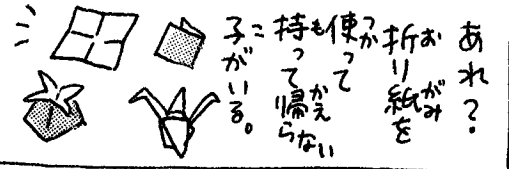 あれ？
折り紙を
使って
持って帰らない
子がいる。